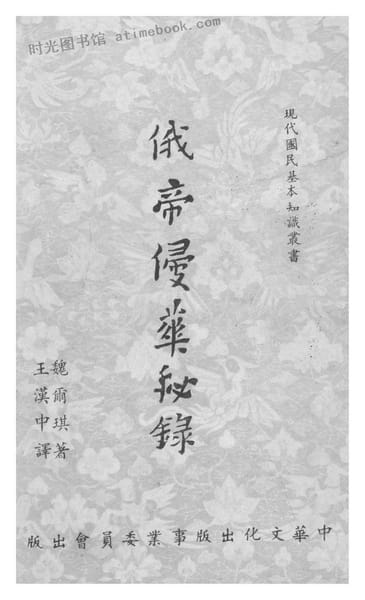 时光图书馆 atimebook.com
現代國民基本知識叢書
俄帝侵華秘錄
魏爾琪著
王漢中譯
中華文化出版事業委員會出版